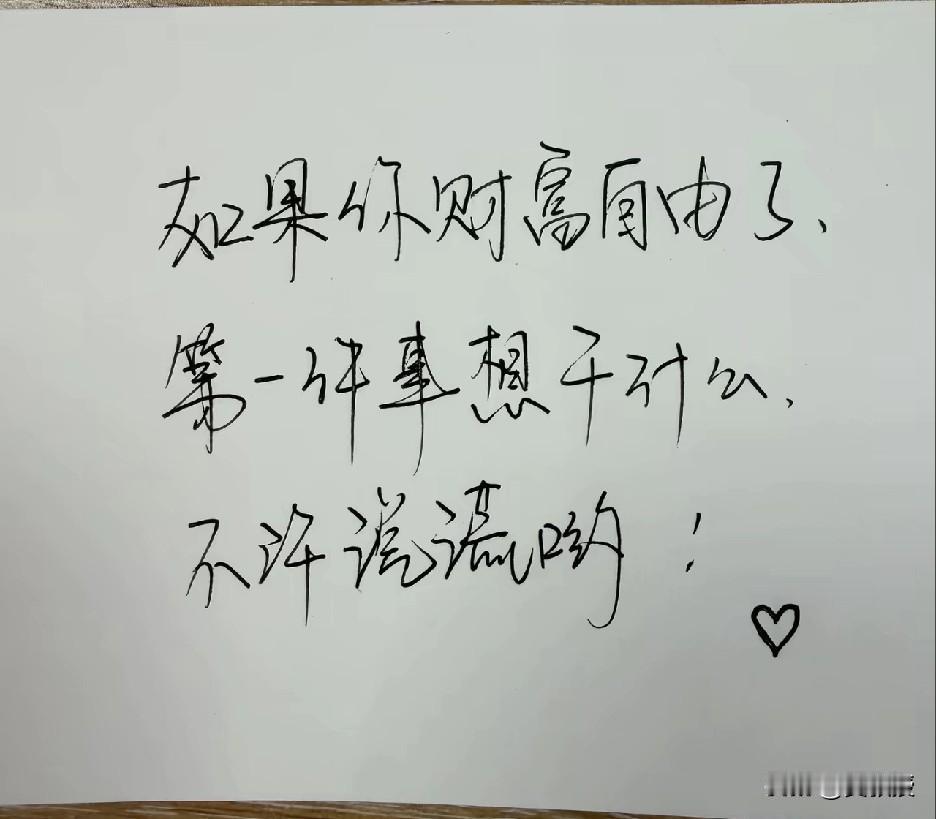 如果你财富自由了、
第一件事想干什么、
不许说谎哟！